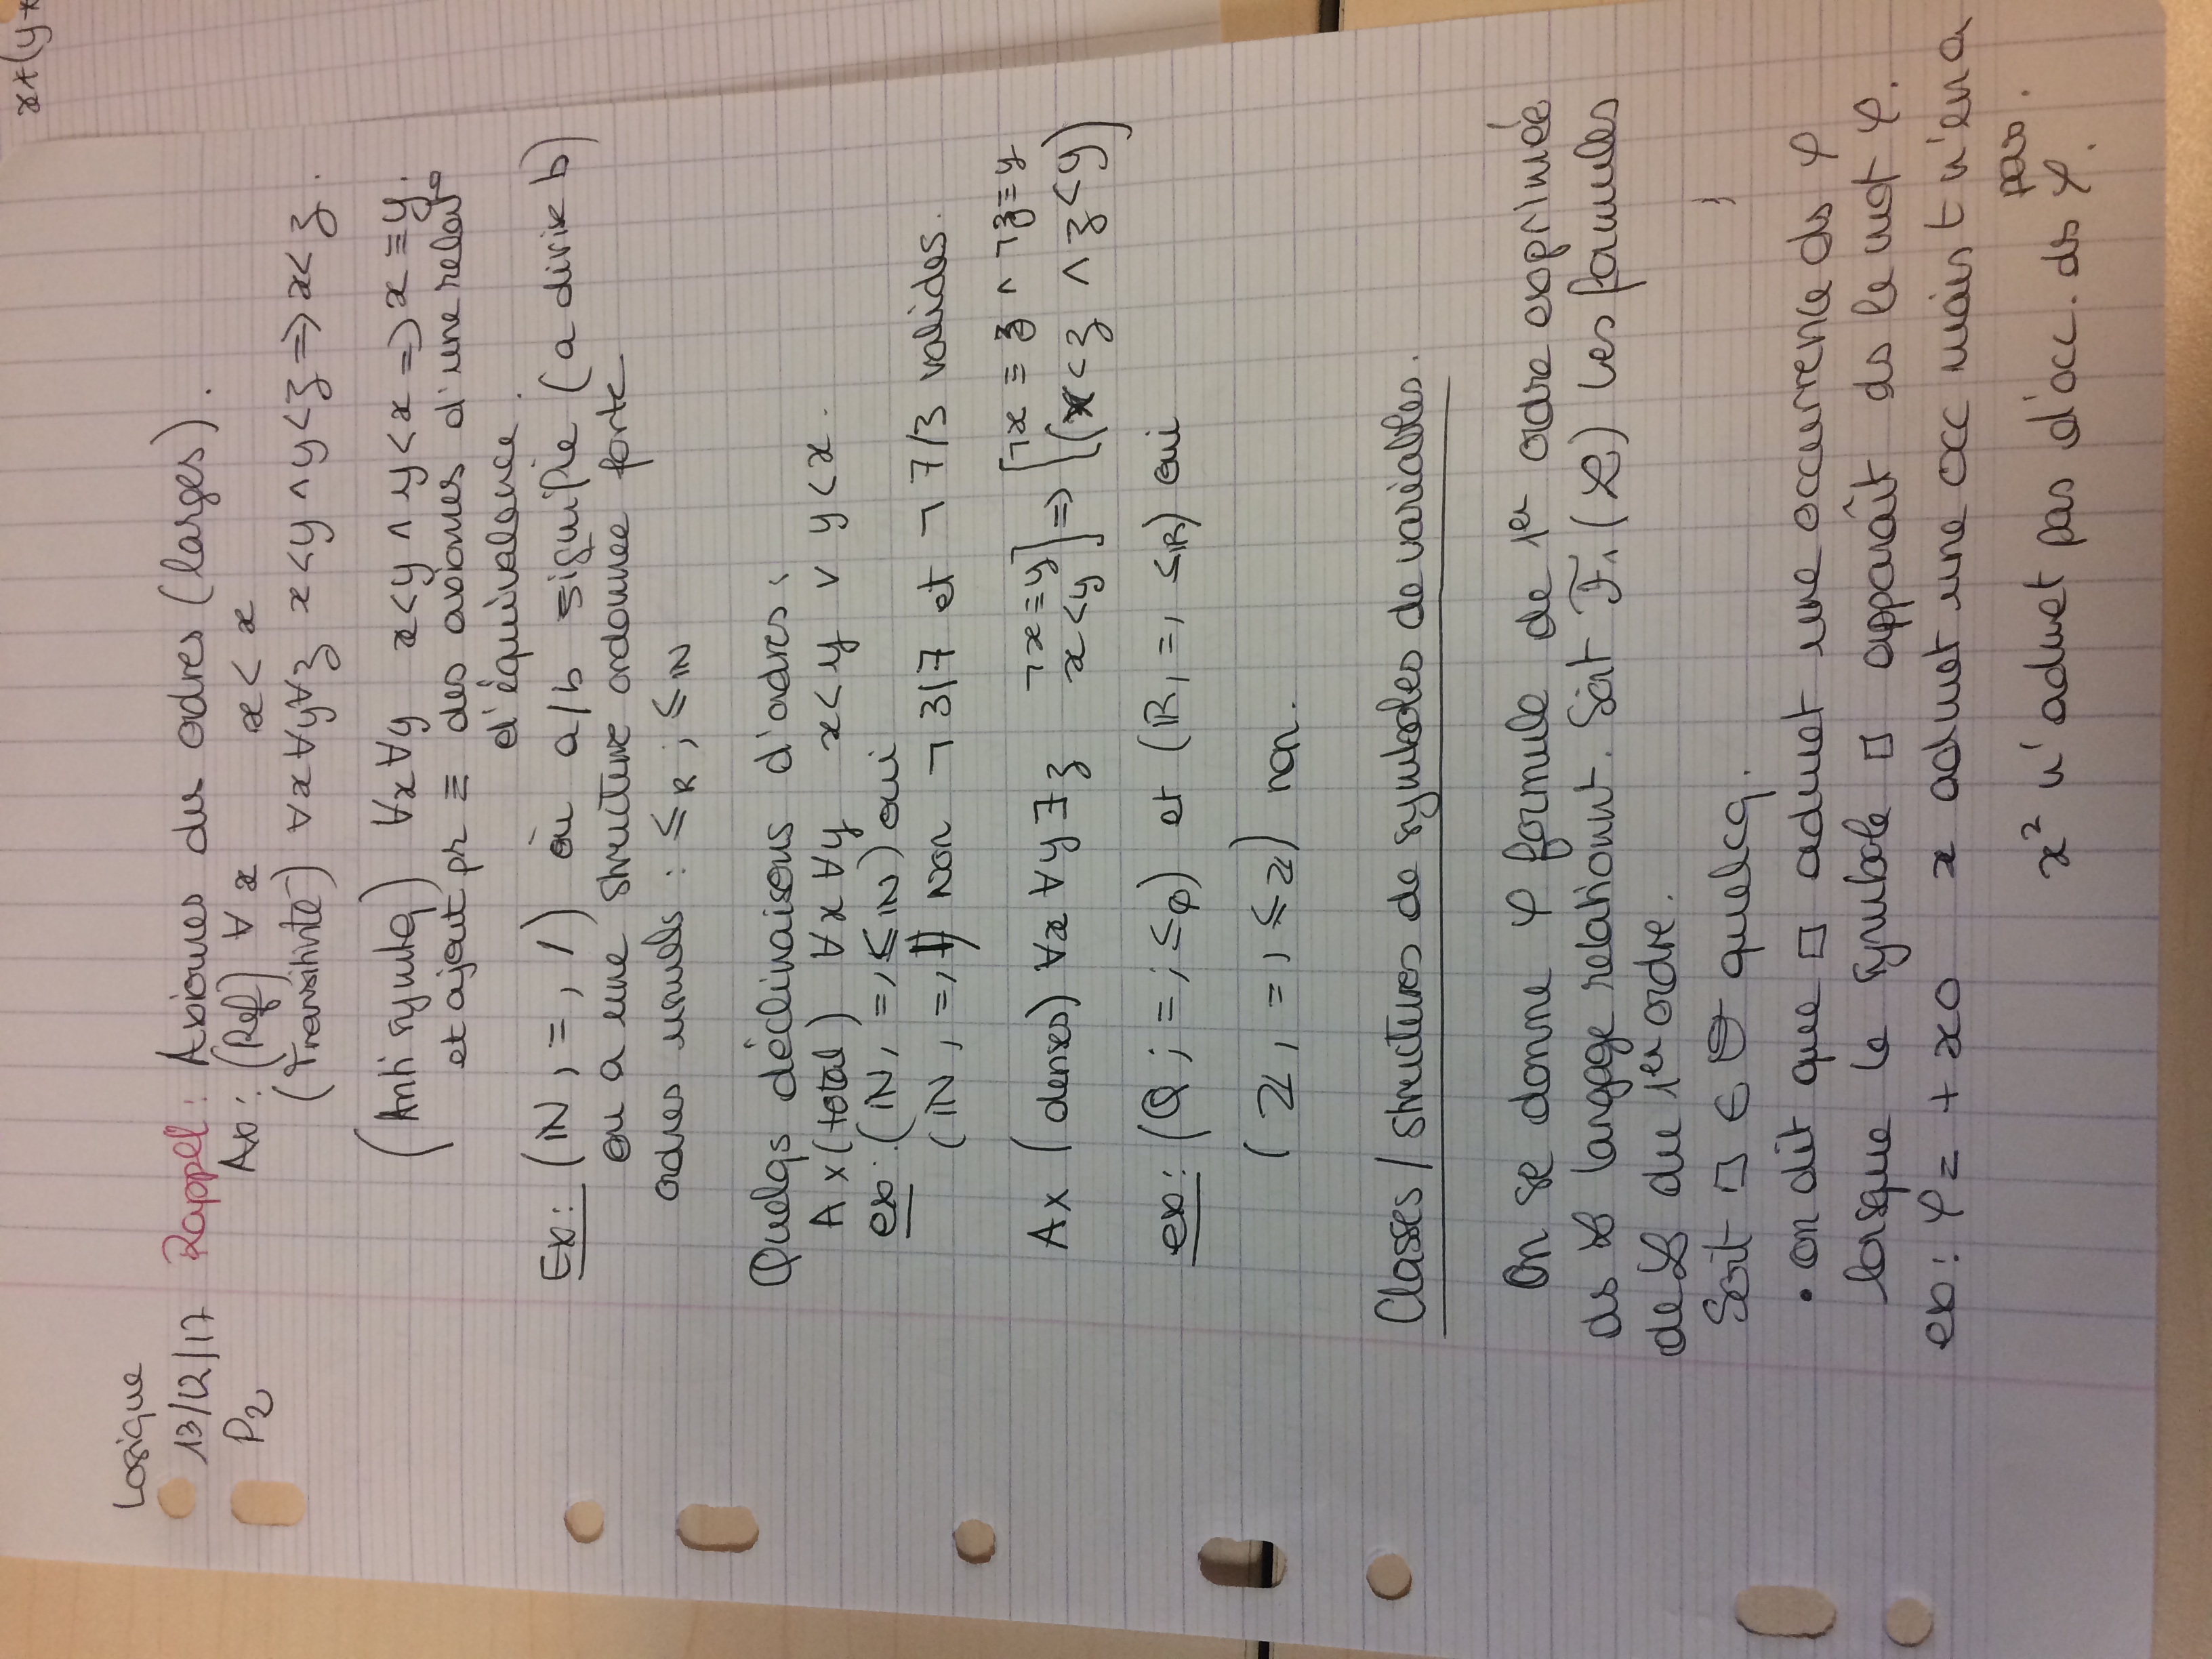 x*(y*
Logique
13/12/17 Rappel : Axiomes des ordres (larges).
P2 Ax : (Ref) ∀x x < x
(Transitivité) ∀x∀y∀z x<y ∧ y<z ⇒ x<z.
(Anti symtq) ∀x∀y x<y ∧ y<x ⇒ x ≡ y.
et ajout pr ≡ des axiomes d'une relat°
d'équivalence.
Ex : (ℕ, =, /) où a/b signifie (a divise b)
on a une structure ordonnée forte
ordres usuels : ≤R ; ≤ℕ
Quelqs déclinaisons d'ordres :
Ax (total) ∀x∀y x<y ∨ y<x.
ex : (ℕ, =, ≤ℕ) oui
(ℕ, =, /) Non ¬ 3/7 et ¬ 7/3 valides.
¬x ≡ y ] [ ¬x ≡ z ∧ ¬z ≡ y
Ax (denses) ∀x∀y∃z ⇒
x<y ] [ (x<z ∧ z<y)
ex : (ℚ ; = ; ≤ℚ) et (ℝ, =, ≤ℝ) oui
(ℤ, =, ≤ℤ) non.
Classes / structures de symboles de variables.
On se donne φ formule de 1er ordre exprimée
ds ℒ langage relationnt. Soit ℱ1(ℒ) les formules
de ℒ du 1er ordre.
Soit □ ∈ quelcq.
• on dit que □ admet une occurrence ds φ
lorsque le symbole □ apparaît ds le mot φ.
ex : φ = + x0 x admet une occ mais t n'en a
pas.
x² n'admet pas d'occ. ds φ.